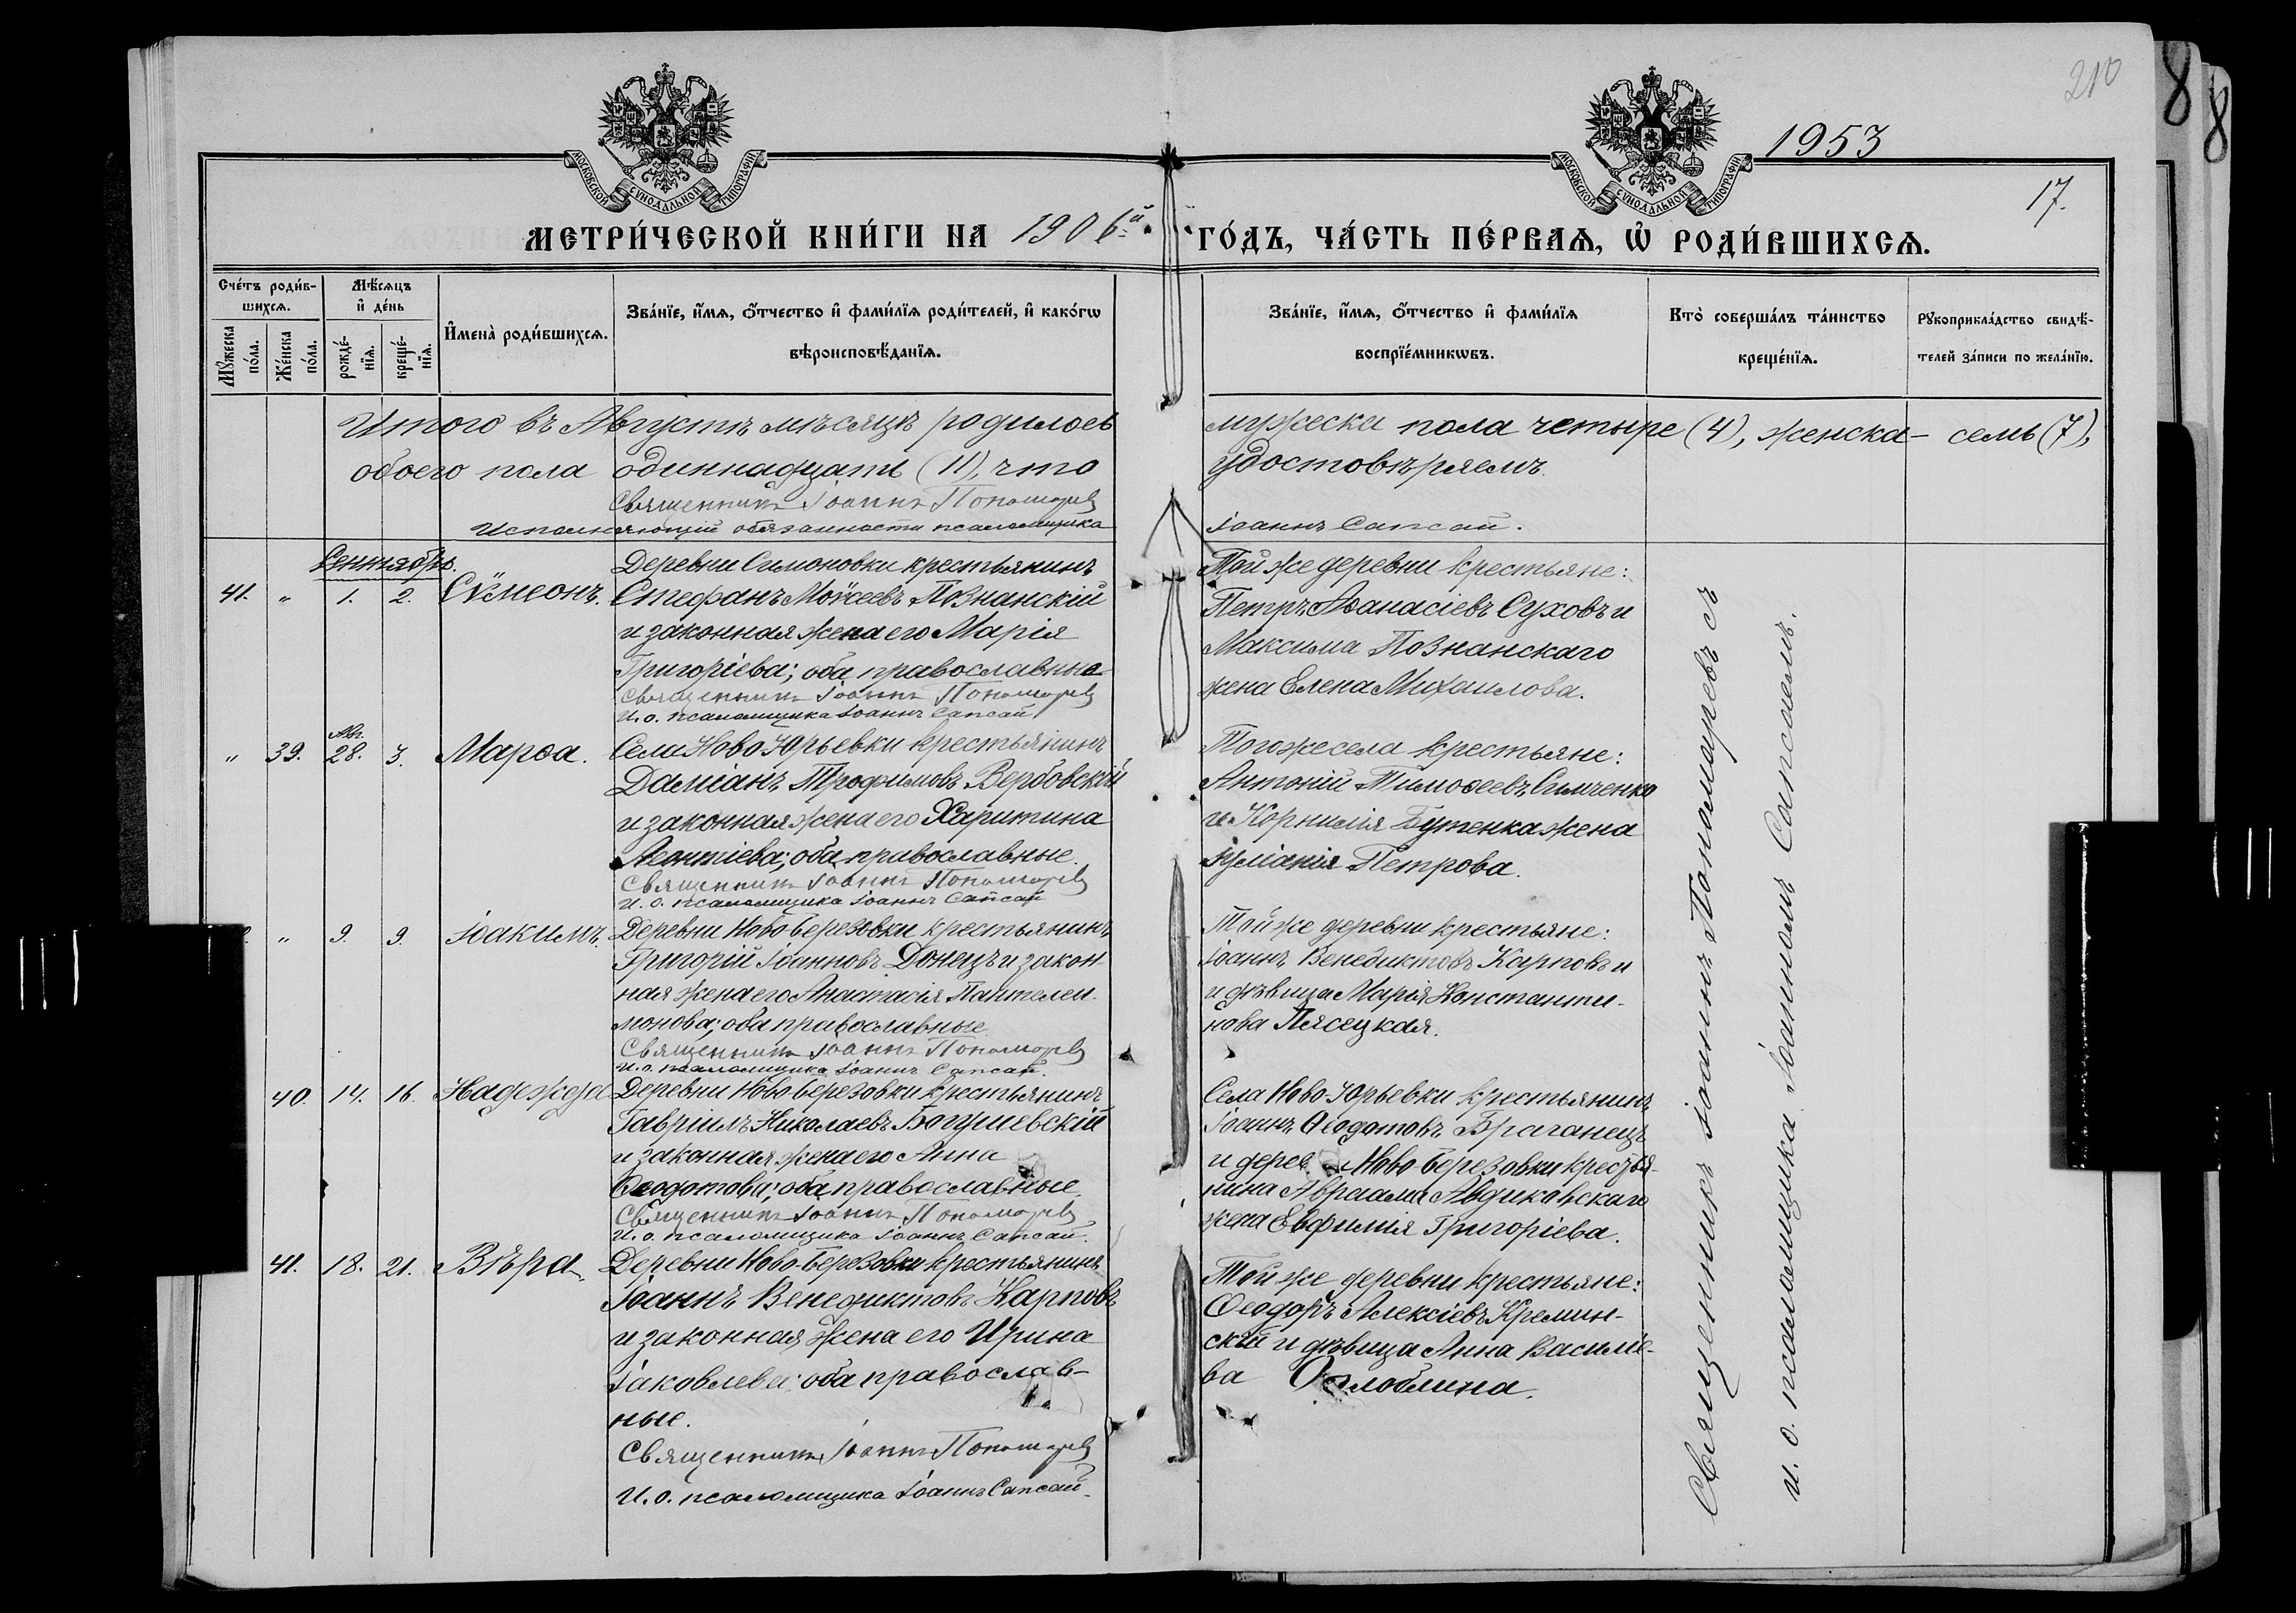 210
8
8
1953
17.
МОСКОВСКОЙ СѴНОДАЛЬНОЙ ТИПОГРАФІИ
МОСКОВСКОЙ СѴНОДАЛЬНОЙ ТИПОГРАФІИ
МЕТРИ́ЧЕСКОЙ КНИ́ГИ НА 1906й
ГО́ДЪ, ЧА́СТЬ ПЕ́РВАѦ, Ѽ РОДИ́ВШИХСѦ.
Сче́тъ роди́в-
шихсѧ.
Мꙋ́жеска по́ла.
Же́нска по́ла.
Мѣ́сѧцъ
и҆ де́нь
рожде́-нїѧ.
креще́-нїѧ.
И҆мена̀ роди́вшихсѧ.
Зва́нїе, и҆́мѧ, ѻ҆́тчество и҆ фами́лїѧ роди́телей, и҆ како́гѡ
вѣроисповѣ́данїѧ.
Зва́нїе, и҆́мѧ, ѻ҆́тчество и҆ фами́лїѧ
воспрїе́мникѡвъ.
Кто̀ соверша́лъ та́инство
креще́нїѧ.
Рꙋкоприкла́дство свидѣ́-
телей за́писи по жела́нїю.
Итого въ Августѣ мѣсяцѣ родилось мужеска пола четыре (4), женска – семь (7),
обоего пола одиннадцать (11), что удостовѣряемъ.
Священникъ Іоаннъ Пономаревъ
Исполняющій обязанности псаломщика Іоаннъ Сапсай.
Сентябрь.
41. " 1. 2. Сѵмеонъ.
Деревни Симоновки крестьянинъ
Стефанъ Моѵсеевъ Познанскій
и законная жена его Марія
Григоріева; оба православные
Священникъ Іоаннъ Пономаревъ
И. о. псаломщика Іоаннъ Сапсай
Той же деревни крестьяне:
Петръ Аѳанасіевъ Суховъ и
Максима Познанскаго
жена Елена Михаилова.
" 39. Авг. 28. 3. Марѳа.
Села Ново Юрьевки крестьянинъ
Даміанъ Трофимовъ Вербовскій
и законная жена его Харитина
Леонтіева; оба православные.
Священникъ Іоаннъ Пономаревъ
И. о. псаломщика Іоаннъ Сапсай
Того же села крестьяне:
Антоній Тимоѳеевъ Симченко
и Корнилія Бутенка жена
Іуліанія Петрова.
" 9. 9. Іоакимъ.
Деревни Ново-Березовки крестьянинъ
Григорій Іоанновъ Донецъ и закон-
ная жена его Анастасія Пантелеи-
монова; оба православные
Священникъ Іоаннъ Пономаревъ
И. о. псаломщика Іоаннъ Сапсай.
Той же деревни крестьяне:
Іоаннъ Венедиктовъ Карповъ и
и дѣвица Марія Константи-
нова Пясецкая.
40. 14. 16. Надежда
Деревни Ново-Березовки крестьянинъ
Гавріилъ Николаевъ Богушевскій
и законная жена его Анна
Ѳеодотова; оба православные.
Священникъ Іоаннъ Пономаревъ
И. о. псаломщика Іоаннъ Сапсай.
Села Ново-Юрьевки крестьянинъ
Іоаннъ Ѳеодотовъ Браганецъ
и дерев Ново-Березовки крестья-
нина Авраама Авдиковскаго
жена Евфимія Григоріева.
41. 18. 21. Вѣра
Деревни Ново-Березовки крестьянинъ
Іоаннъ Венедиктовъ Карповъ
и законная жена его Ирина
Іаковлева; оба православ-
ные.
Священникъ Іоаннъ Пономаревъ
И. о. псаломщика Іоаннъ Сапсай.
Той же деревни крестьяне:
Ѳеодоръ Алексіевъ Кремин-
скій и дѣвица Анна Василіе-
ва
Священникъ Іоаннъ Пономаревъ съ
и. о. псаломщика Іоанномъ Сапсаемъ.